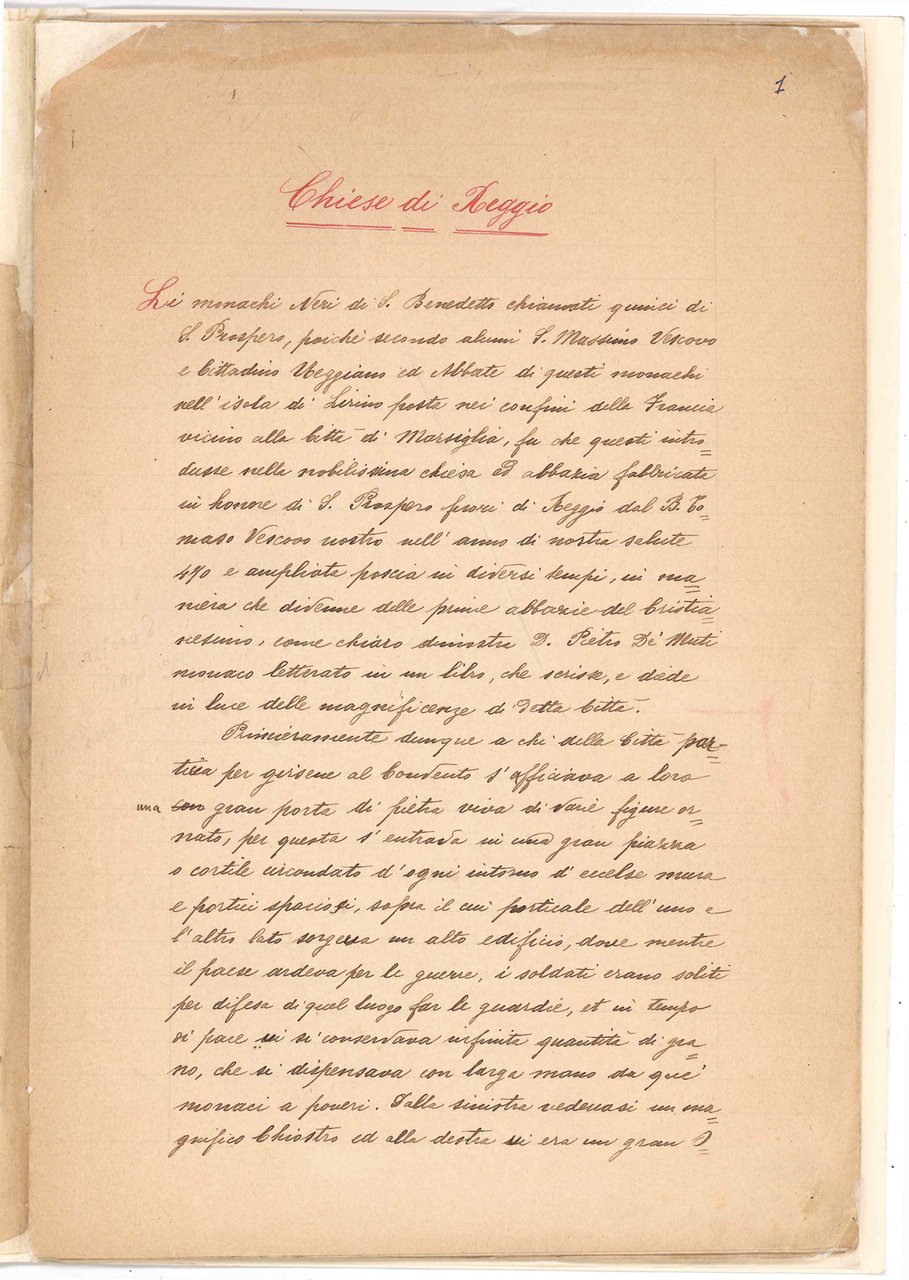 1
Chiese di Reggio
Li monachi Neri di S. Benedetto chiamati quinci di
S. Prospero, poichè secondo alcuni S. Massimo Vescovo
e Cittadino Reggiano ed Abbate di questi monachi
nell'isola di Lirino posta nei confini della Francia
vicino alla Città di Marsiglia, fu che questi intro=
dusse nella nobilissima chiesa ed abbazia fabbricata
in honore di S. Prospero fuori di Reggio dal B. To=
maso Vescovo nostro nell'anno di nostra salute
470 e ampliata poscia in diversi tempi, in ma=
niera che divenne delle prime abbazie del Cristia=
nesimo, come chiaro dimostra D. Pietro De' Muti
monaco letterato in un libro, che scrisse, e diede
in luce delle magnificenze di detta Città.
Primieramente dunque a chi della Città par=
tiva per girsene al Convento s'offeriva a loro
una gran porta di pietra viva di varie figure or=
nato, per questa s'entrava in una gran piazza
o cortile circondato d'ogni intorno d'eccelse mura
e portici spaciosi, sopra il cui porticale dell'uno e
l'altro lato sorgeva un alto edificio, dove mentre
il paese ardeva per le guerre, i soldati erano soliti
per difesa di quel luogo far le guardie, et in tempo
di pace vi si conservava infinita quantità di gra=
no, che si dispensava con larga mano da que'
monaci a poveri. Dalla sinistra vedevasi un ma=
gnifico Chiostro ed alla destra vi era un gran